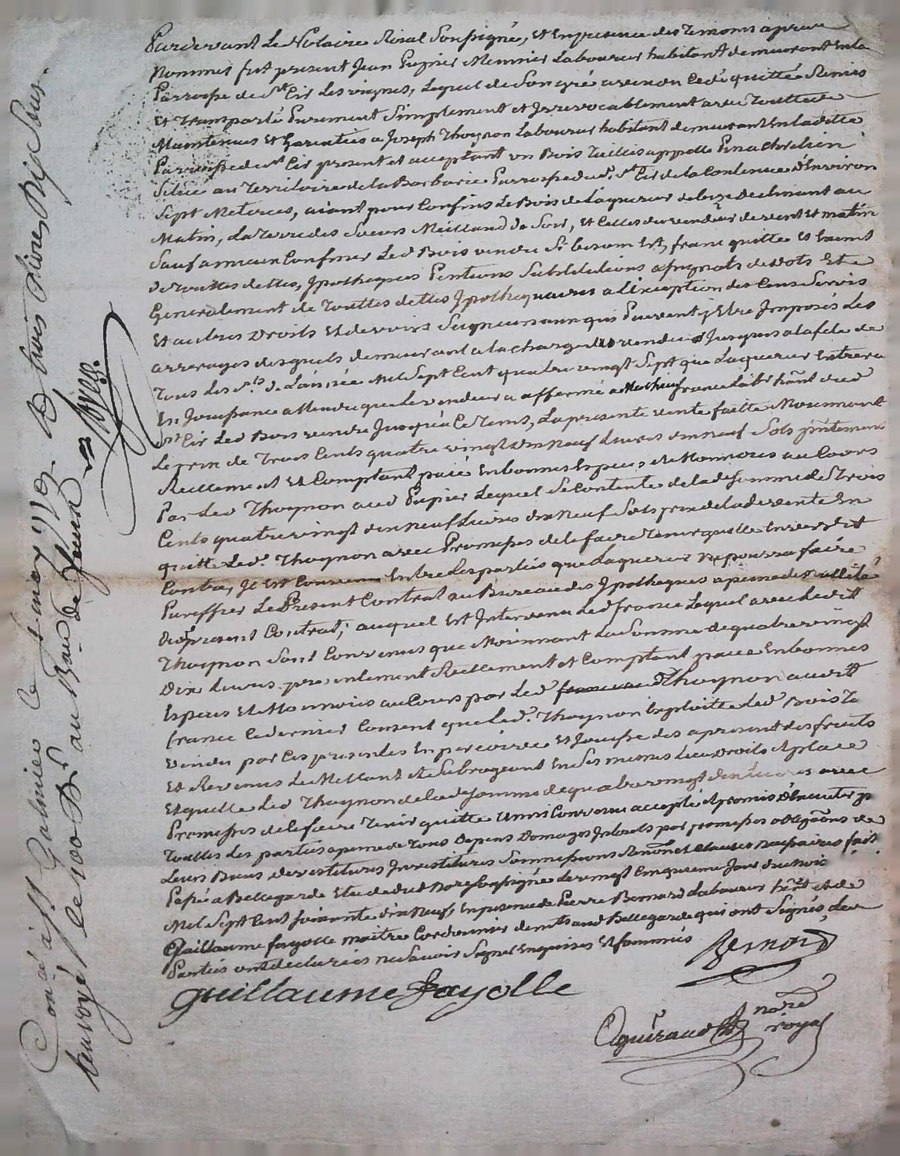 Pardevant Le Notaire Roial Soussigné, et En presence des Temoins apres
Nommés fut present Jean Pupier Meunier Laboureur habitant demeurant En la
Parroisse de St Cir Les vignes, Lequel de Son gré a vendu Cedé quitté Remis
Et Transporté Purement Simplement et Irrevocablement avec Toutte
Maintenue Et Garentie a Joseph Thoynon Laboureur habitant demeurant En ladite
Parroisse de St Cir present et acceptant un Bois Taillis appellé
Situé au Territoire de la Barbarie Parroisse dud. St Cir de la Contenue d'Environ
Sept Meterees, aiant pour Confins Le Bois de Laquereur de bize declinant au
Matin, La Terre des Sieurs Meilland de Soir, et Celles du vendeur de vent et matin
Sauf a mieux Confiner Led. Bois vendu Si besoin Est, franc quitte Et Exemt
de Touttes dettes, Ipotheques Pentions Substitutions assignats de dots Et
Generalement de Touttes dettes Ipothequaires a l'Exception des Cens Servis
Et autres Droits Et devoirs Seigneuriaux qui Peuvent y Etre Imposés Les
arrerages desquels demeurant a la Charge du vendeur Jusques a la fete de
Tous Les Sts de L'année Mil Sept Cent quatre vingt Sept que Laquereur Entrera
En Jouissance attendu que Le vendeur a affermé a france Labr hant dud.
St Cir Led. Bois vendu Jusqu'a Ce Tems, La presente vente faitte Moienant
Le prix de Trois Cents quatre vingt dix Neuf Livres dix neuf Sols presentement
Reellement Et Comptant paié En bonnes Especes et Monnoies au Cours
Par Led. Thoynon aud. Pupier Lequel Se Contente de lad. Somme de Trois
Cents quatre vingt dix Neuf Livres dix Neuf Sols prix de lad. vente En
quitte Led. Thoynon avec Promesse de le faire Tenir quitte Envers Et
Contre, Et Est Convenu Entre Les parties que Laquereur Ne pourra faire
Puriffier Le Present Contrat au Bureau des Ipotheques a peine de
du present Contrat; auquel Est Intervenu Led. france Lequel avec Ledit
Thoynon Sont Convenus que Moiennant La Somme de quatre vingt
Dix Livres presentement Reellement et Comptant paiée En bonnes
Especes Et Monnoies au Cours par Led. Thoynon audit
france Ce dernier Consent que Led. Thoynon Exploitte Led. Bois
vendu par Ces presentes En percoive Et Jouisse des a present des fruits
Et Revenus Le Mettant Et Subrogeant En Ses memes Lieu Droits Et place
Et quitte Led. Thoynon de lad. Somme de quatre vingt dix Livres avec
Promesse de le faire Tenir quitte Ainsi Convenu accepté Et promis d'Executer par
Touttes Les parties a peine de Tous Depens Domages Interets par promesses obligaons de
Leurs Biens devestitures Investitures Sommissions Renonons Clauses Necessaires fait
Passé a Bellegarde Etude dud. Nore Soussigné Le vingt Cinquieme Jour du mois
Mil Sept Cent Soixante dix Neuf, En presence de Pierre Bernard Laboureur hant et de
Guillaume fayolle maitre Cordonnier demt aud. Bellegarde qui ont Signés, Les
Parties ont declarées ne Savoir Signer Enquises Et Sommées
Bernard
guillaume Fayolle
guéraud nore royal
Con. a St Galmier le 1 may 1779. R. trois livres, dix Sous.
renvoyé le 100e dr au Bau de feurs